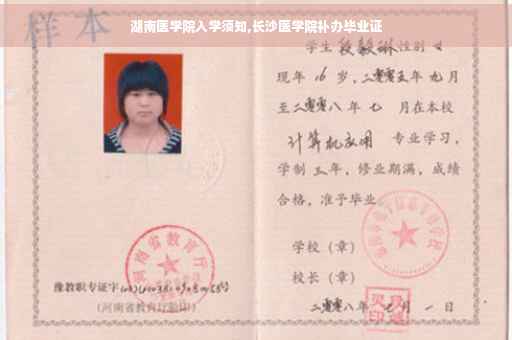 湖南医学院入学须知,长沙医学院补办毕业证
样本
学生 段毅琳 性别 女
现年 16 岁，二零零五年九月
至二零零八年七 月在本校
计算机应用 专业学习，
学制 三年，修业期满，成绩
合格，准予毕业
学校（章）
校长（章）
二零零八年七月一日
河南省教育厅
豫教职专证字
(河南省教育厅验印)